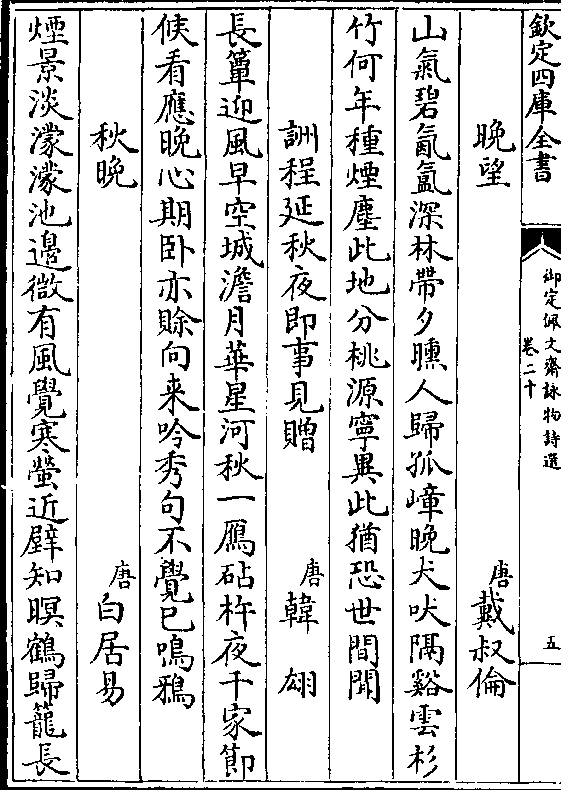 欽定四庫全書
御定佩文齋詠物詩選
卷二十
五
晚望
唐戴叔倫
山氣碧氤氳深林帶夕曛人歸孤嶂晚犬吠隔谿雲杉
竹何年種煙塵此地分桃源寧異此猶恐世間聞
詶程延秋夜即事見贈
唐韓翃
長簟迎風早空城澹月華星河秋一鴈砧杵夜千家節
候看應晚心期卧亦賒向来吟秀句不覺已鳴鴉
秋晚
唐白居易
煙景淡濛濛池邊微有風覺寒螢近壁知暝鶴歸籠長